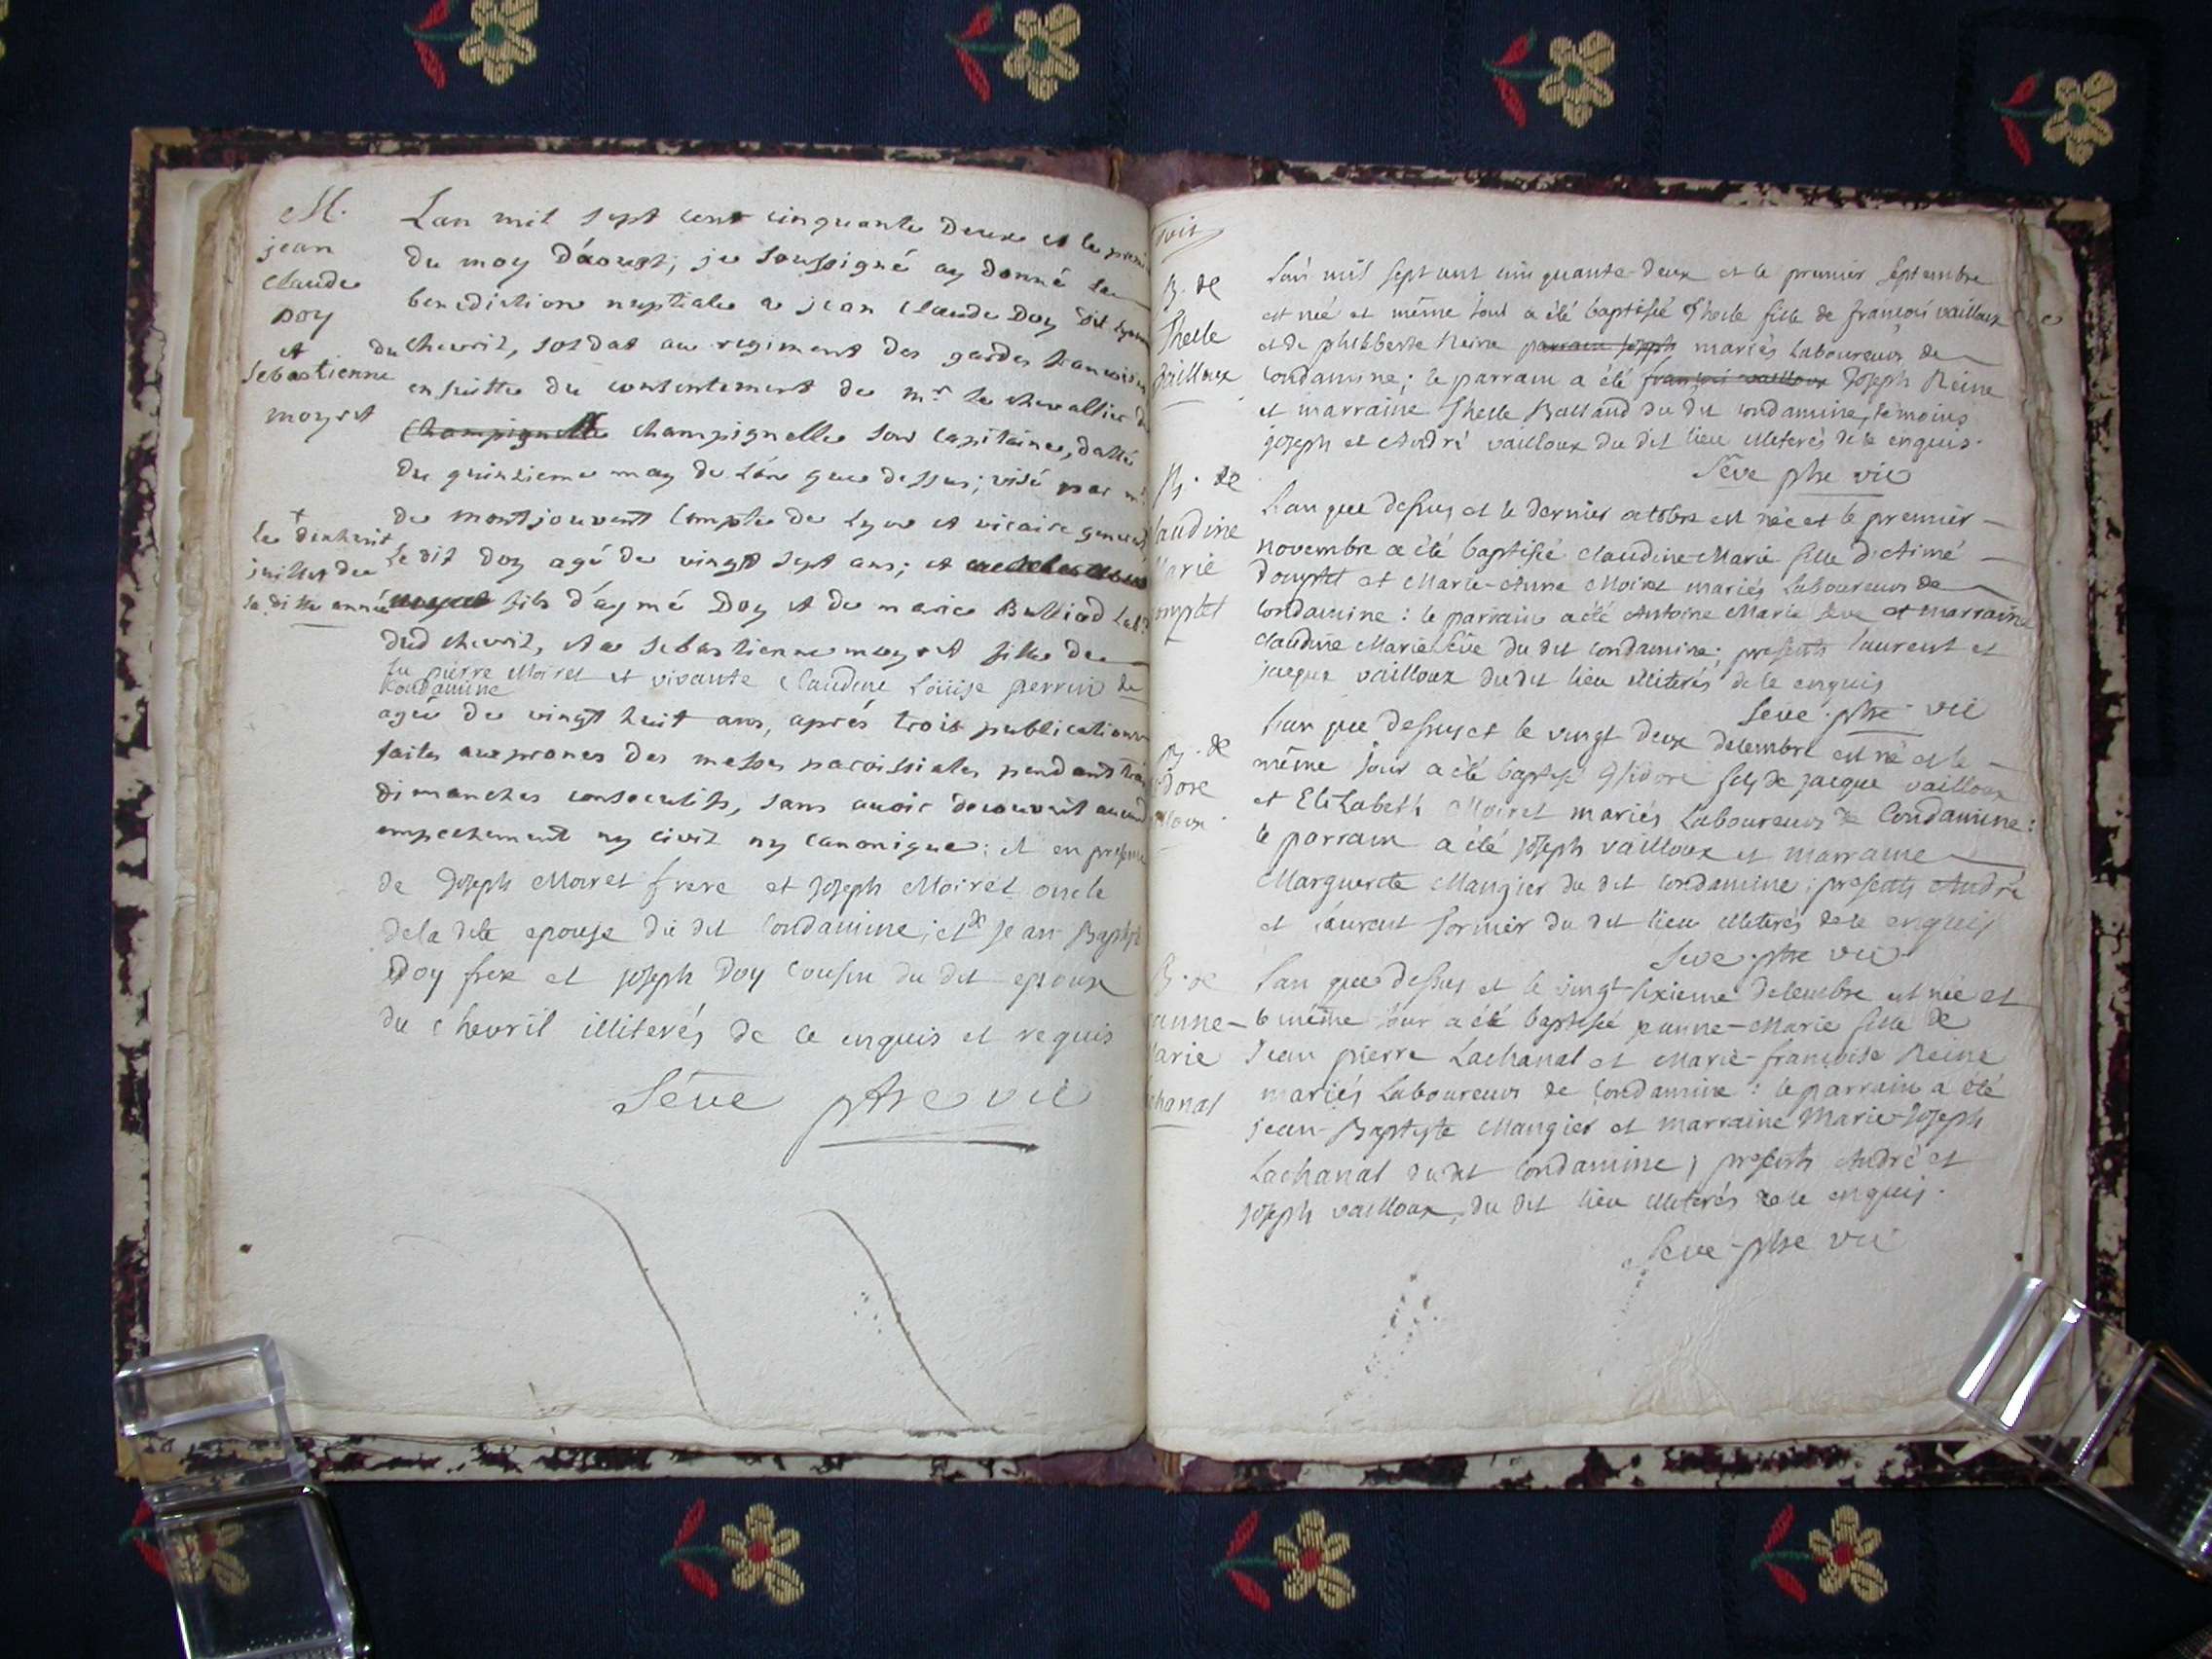 M.
jean
claude
Doy
et
Sebastienne
moyret
Lan mil sept cent cinquante deux et le
du moy d'aoust, je soussigné ay donné la
benediction nuptiale a jean claude Doy dit
du chevril, soldat au regiment des gardes
en suitte du consentement de mr le chevallier
champignelle son capitaine, datté
du quinzieme may de l'an que dessus; visé par
de montjouvent compte de Lyon et vicaire general
le
juillet de
la ditte année
Le dit Doy agé de vingt sept ans; et
fils d'aymé Doy et de marie Bulliod
dud chevril, et a sebastienne moyret fille de
feu pierre Moiret et vivante Claudine Loüise perrin de
Condamine
agée de vingt huit ans, aprés trois publications
faites aux prones des messes paroissiales pendant trois
dimanches consecutifs, sans avoir decouvert aucun
empechement ny civil ny canonique; et en presence
de Joseph Moiret frere et Joseph Moiret oncle
de la dite epouse du dit Condamine; et de jean Baptiste
Doy frere et joseph Doy cousin du dit epoux
du chevril illiterés de ce enquis et requis
Séve ptre vic
B. de
Thecle
Vailloux
Lan mil sept cent cinquante-deux et le premier septembre
est née et même jour a été baptisée Thecle fille de françois vailloux
et de philiberte Reine parrain joseph mariés Laboureurs de
Condamine; le parrain a été françois vailloux Joseph Reine
et marraine Thecle Balland du dit condamine, temoins
joseph et André vailloux du dit lieu illiterés de ce enquis.
Séve ptre vic
B. de
laudine
arie
omptet
Lan que dessus et le dernier octobre est née et le premier
novembre a été baptisée claudine-Marie fille d'Aimé
et Marie-Anne Moiret mariés Laboureurs de
Condamine: le parrain a été Antoine Marie Seve et marraine
Claudine Marie Séve du dit condamine; presents laurent et
jacque vailloux du dit lieu illiterés de ce enquis
Seve ptre vic
B. de
idore
lloux
Lan que dessus et le vingt deux decembre est né et le
même jour a été baptisé Isidore fils de jacque vailloux
et Elizabeth Moiret mariés Laboureurs de Condamine:
le parrain a été joseph vailloux et marraine
Marguerite Mangier du dit condamine; presents André
et laurent du dit lieu illiterés de ce enquis
Seve ptre vic
B. de
anne-
arie
chanal
Lan que dessus et le vingt-sixieme decembre est née et
le même jour a été baptisée jeanne-Marie fille de
Jean pierre Lachanal et Marie-françoise Reine
mariés Laboureurs de Condamine: le parrain a été
jean-Baptiste Mangier et marraine Marie-Joseph
Lachanal du dit condamine, presents André et
joseph vailloux, du dit lieu illiterés de ce enquis.
Seve ptre vic